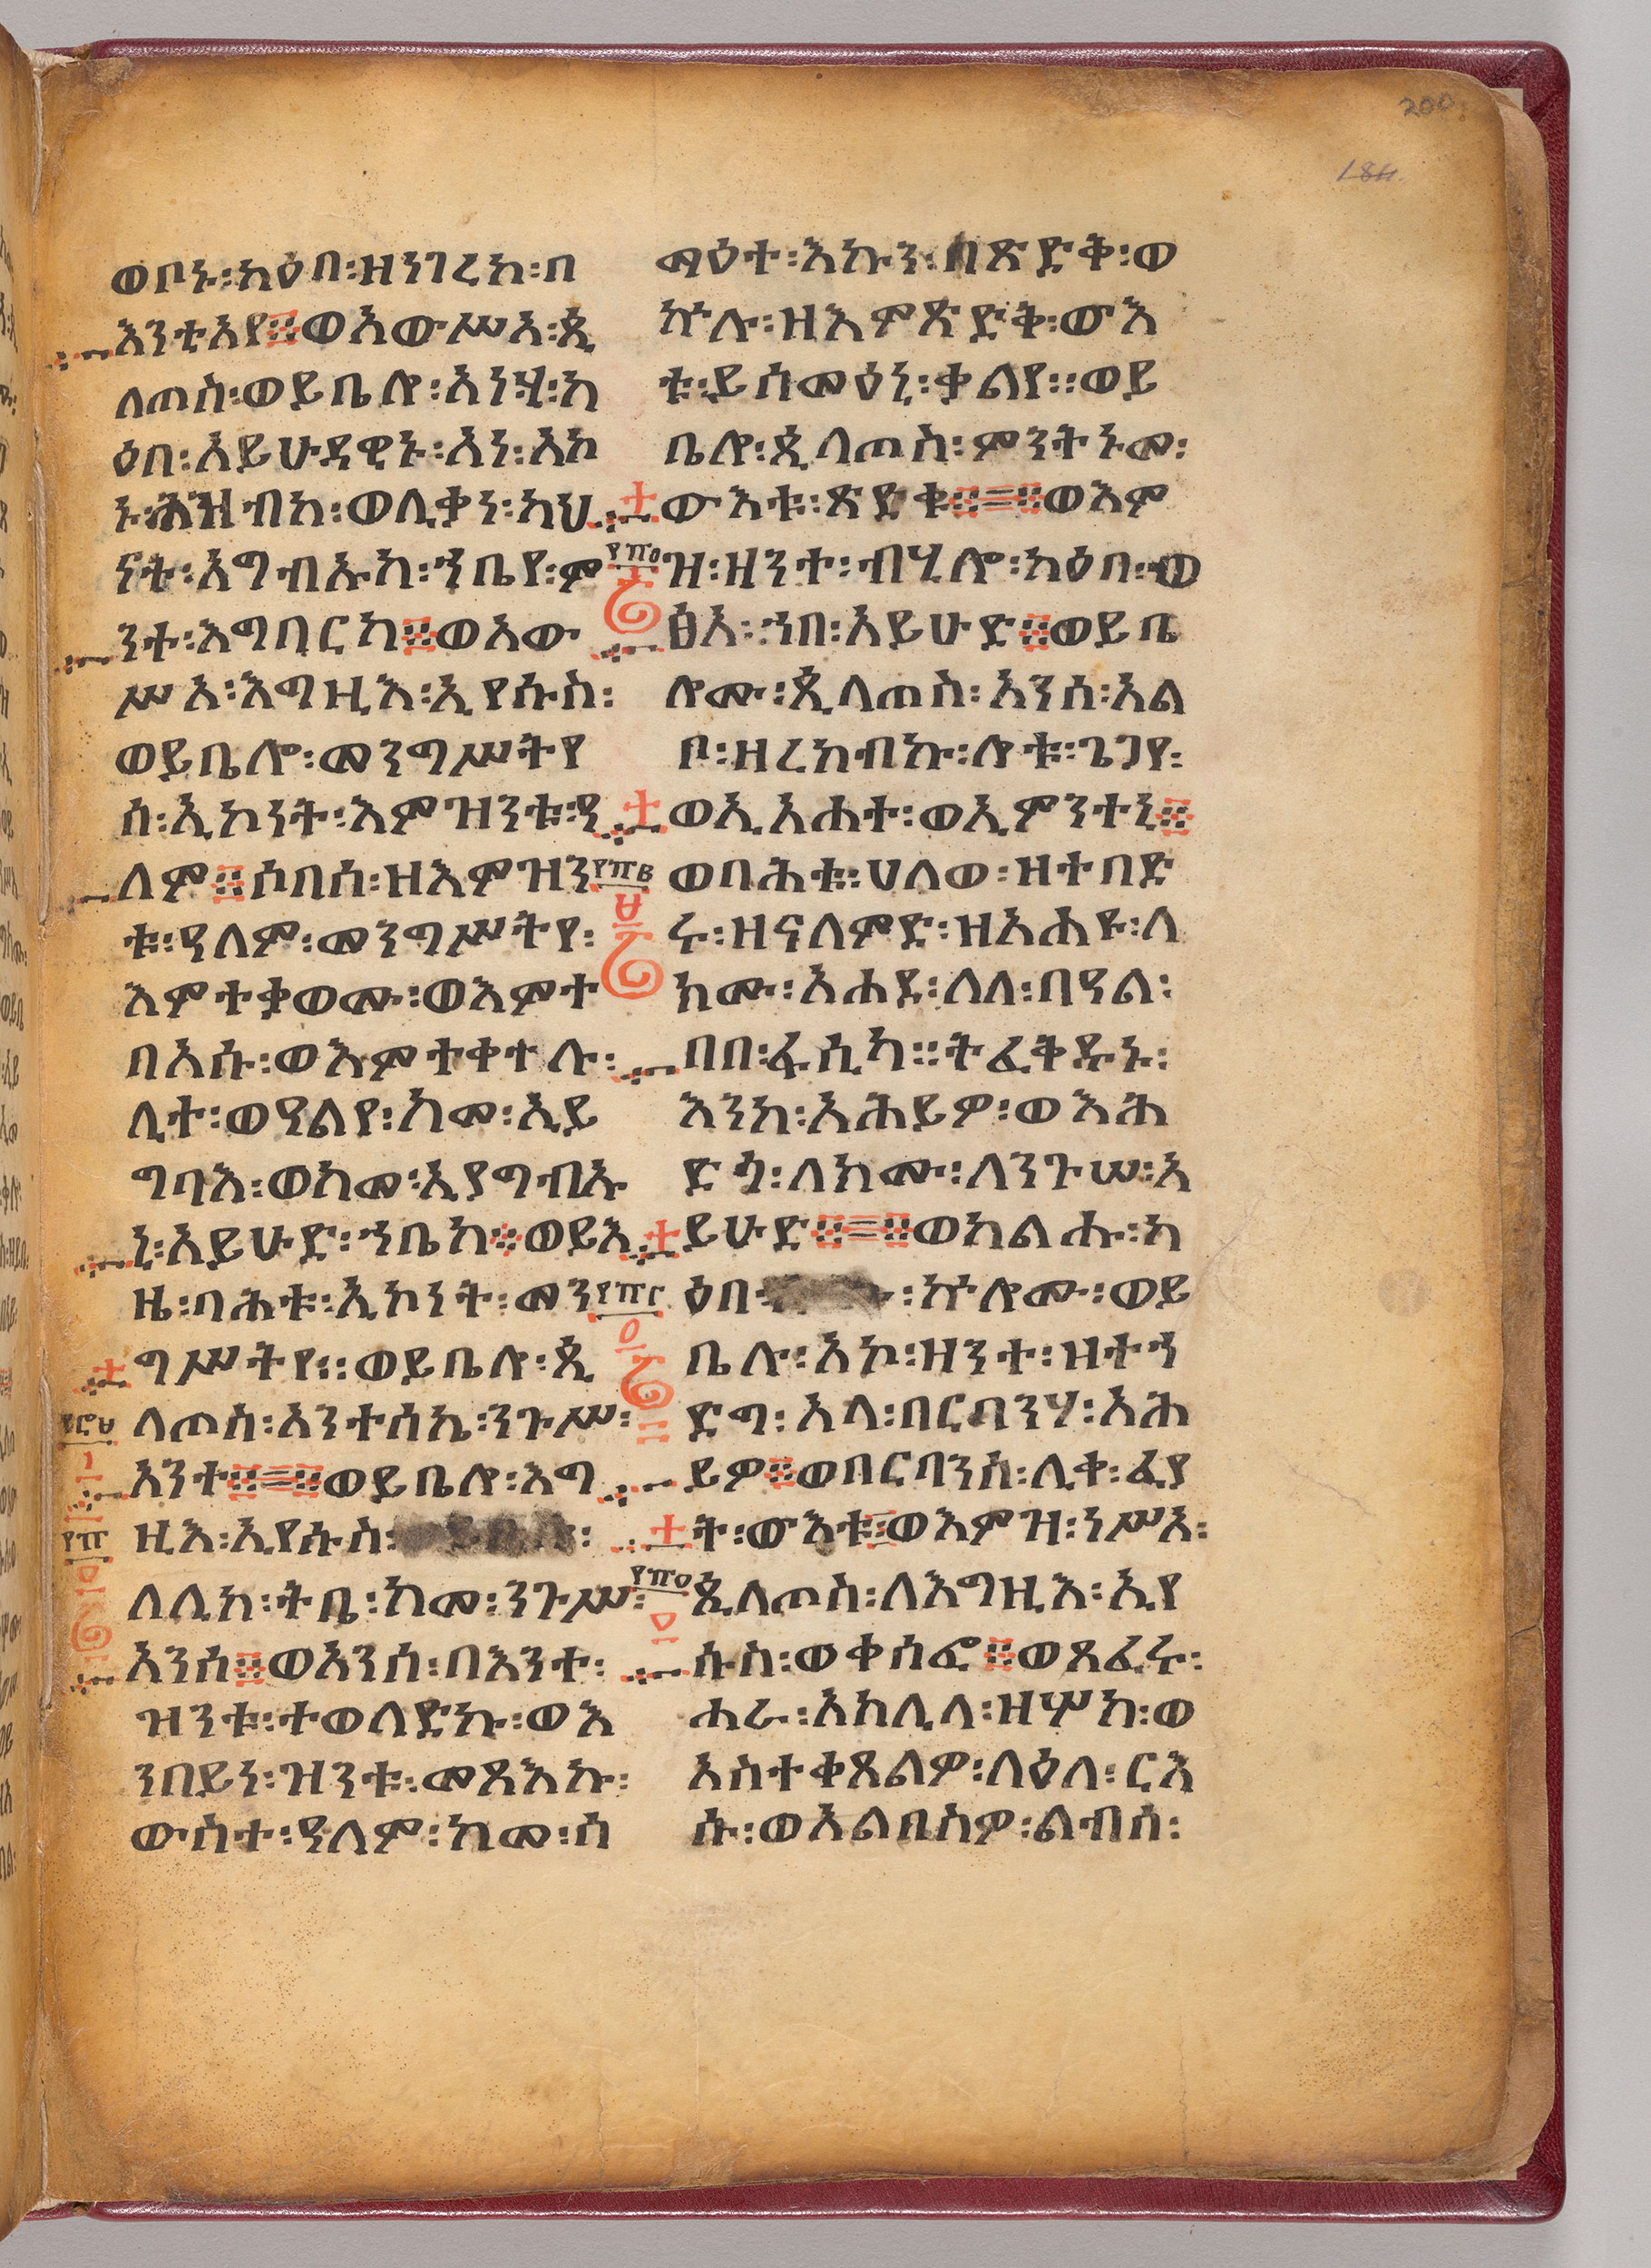 200
ወቦኑ፡ካዕበ፡ዘንገረከ፡በ
እንቲአየ፨ወአውሥአ፡ጲ
ላጦስ፡ወይቤሎ፡አነሂ፡ካ
ዕበ፡አይሁዳዊኑ፡አነ፡አኮ
ኑ፡ሕዝብከ፡ወሊቃነ፡ካህ
ናት፡አግብኡከ፡ኀቤየ፡ም
ንተ፡እግበርከ፨ወአው
ሥአ፡እግዚእ፡ኢየሱስ፡
ወይቤሎ፡መንግሥትየ
ሰ፡ኢኮነት፡እምዝንቱ፡ዓ
ለም፨ሶበሰ፡ዘእምዝን
ቱ፡ዓለም፡መንግሥትየ፡
እምተቃወሙ፡ወእምተ
በአሱ፡ወእምተቀተሉ፡
ሊተ፡ወዓልየ፡ከመ፡ኢይ
ግባእ፡ወከመ፡ኢያግብኡ
ኒ፡አይሁድ፡ኀቤከ፨ወይእ
ዜ፡ባሕቱ፡ኢኮነት፡መን
ግሥትየ፡፡ወይቤሎ፡ጲ
ላጦስ፡አንተሰኬ፡ንጉሥ፡
አንተ፨=፨ወይቤሎ፡እግ
ዚእ፡ኢየሱስ፡
ለሊከ፡ትቤ፡ከመ፡ንጉሥ፡
አንሰ፨ወአንሰ፡በእንተ፡
ዝንቱ፡ተወለድኩ፡ወእ
ንበይነ፡ዝንቱ፡መጻእኩ፡
ውስተ፡ዓለም፡ከመ፡ሰ
ማዕተ፡እኩን፡በጽድቅ፡ወ
ኵሉ፡ዘእምጽድቅ፡ውእ
ቱ፡ይሰመዕኒ፡ቃልየ፡፡ወይ
ቤሎ፡ጲላጦስ፡ምንትኑመ፡
ውእቱ፡ጽድቅ፨=፨ወእም
ዝ፡ዘንተ፡ብሂሎ፡ካዕበ፡ወ
ፅአ፡ኀበ፡አይሁድ፨ወይቤ
ሎሙ፡ጲላጦስ፡አንሰ፡አል
ቦ፡ዘረከብኩ፡ሎቱ፡ጌጋየ፡
ወኢአሐተ፡ወኢምንተኒ፨
ወባሕቱ፡ሀለወ፡ዘተበድ
ሩ፡ዘናለምድ፡ዘአሐዩ፡ለ
ክሙ፡አሐደ፡ለለ፡በዓል፡
በበ፡ፋሲካ፡፡ትፈቅዱኑ፡
እንከ፡አሕይዎ፡ወእሕ
ድጎ፡ለክሙ፡ለንጉሠ፡አ
ይሁድ፨=፨ወከልሑ፡ካ
ዕበ፡ ፡ኵሎሙ፡ወይ
ቤሉ፡አኮ፡ዘንተ፡ዘተኀ
ድግ፡አላ፡በርባንሃ፡አሕ
ይዎ፨ወበርባንሰ፡ሊቀ፡ፈያ
ት፡ውእቱ፨ወእምዝ፡ነሥአ፡
ጲላጦስ፡ለእግዚእ፡ኢየ
ሱስ፡ወቀሰፎ፨ወጸፈሩ፡
ሐራ፡አክሊለ፡ዘሦክ፡ወ
አስተቀጸልዎ፡ላዕለ፡ርእ
ሱ፡ወአልበስዎ፡ልብሰ፡